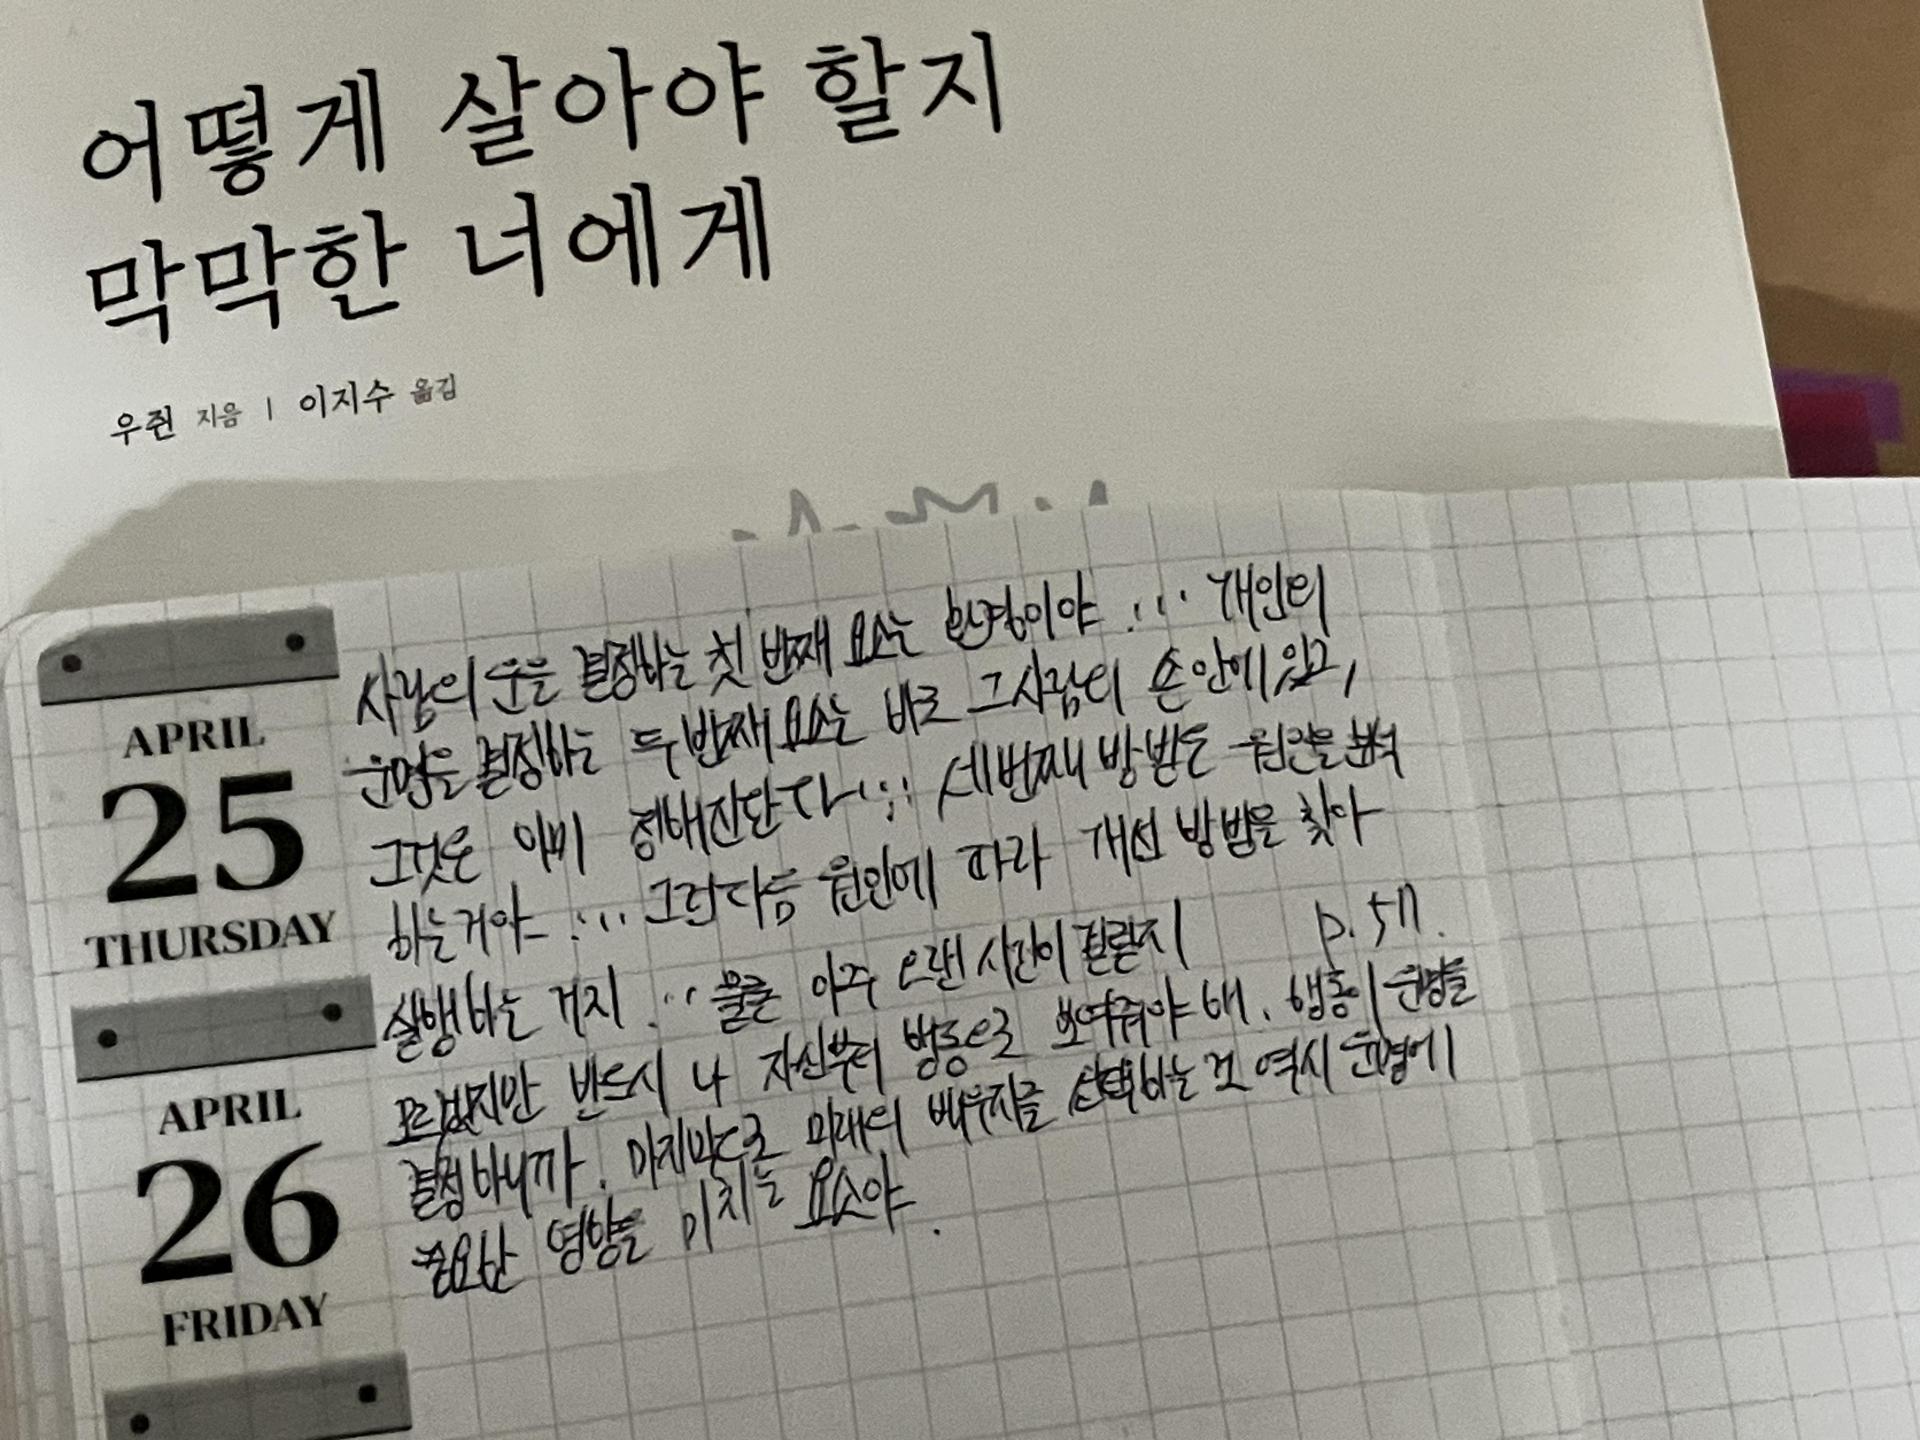 어떻게 살아야 할지
막막한 너에게
우쥔 지음 | 이지수 옮김
사람의 운을 결정하는 첫 번째 요소는 환경이야 ... 개인의
운명을 결정하는 두 번째 요소는 바로 그 사람의 손 안에 있고,
그것은 이미 정해진단다... 세번째 방법은 원인을 분석
하는거야 ... 그런 다음 원인에 따라 개선 방법을 찾아
실행하는 거지 ... 물론 아주 오랜 시간이 걸릴지 p. 57.
모르겠지만 반드시 나 자신부터 행동으로 보여줘야 해. 행동이 운명을
결정하니까. 마지막으로 미래의 배우자를 선택하는 것 역시 운명에
중요한 영향을 미치는 요소야.
APRIL
25
THURSDAY
APRIL
26
FRIDAY